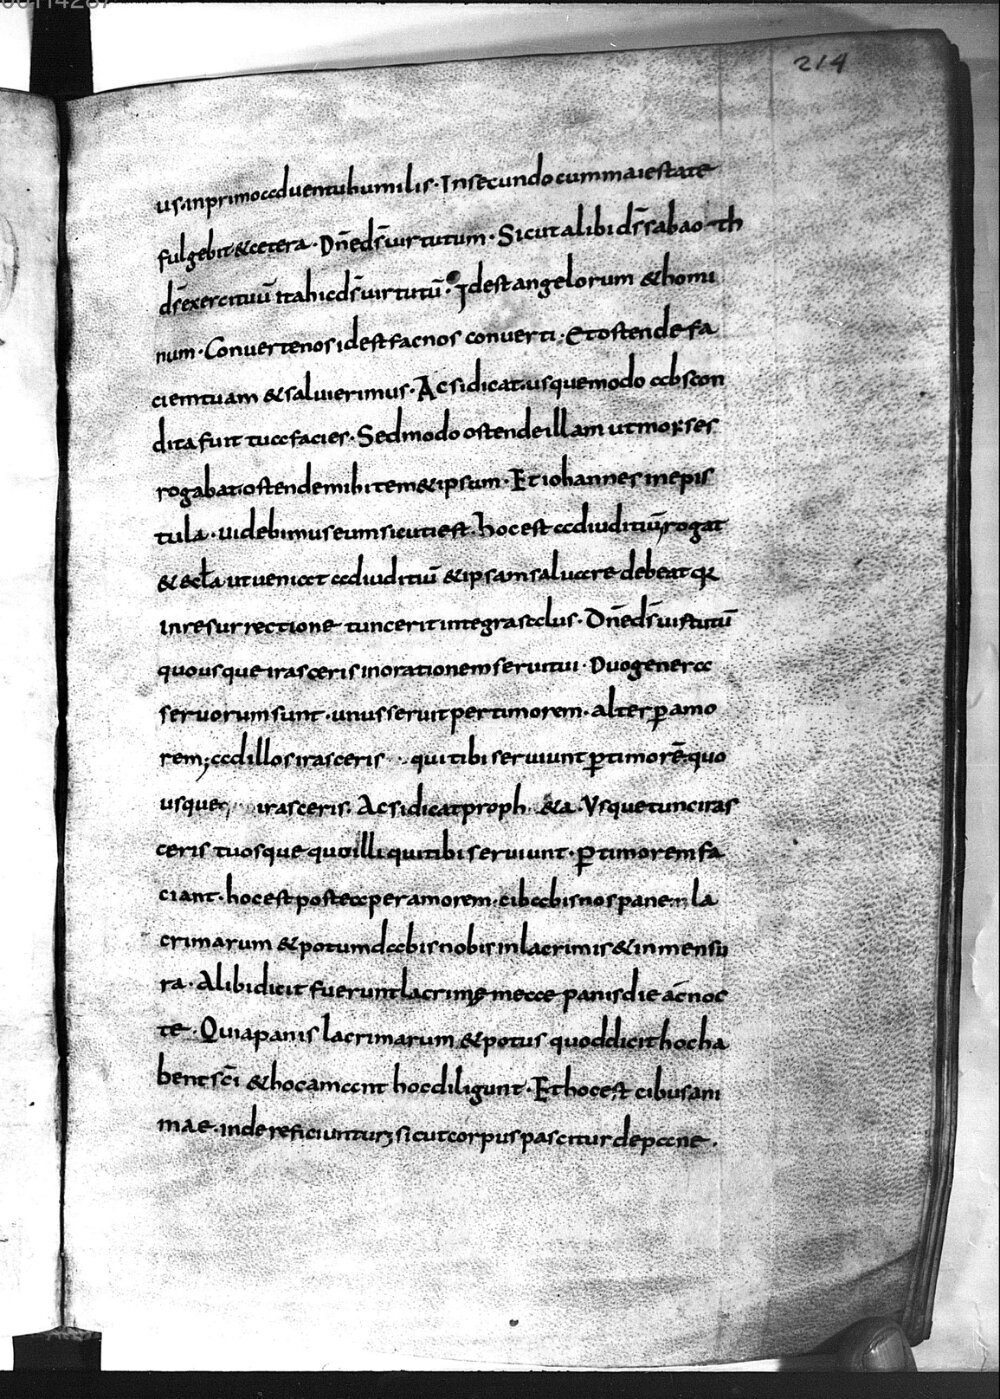 00114287
214
us. inprimo aduentu humilis · In secundo cum maiestate
fulgebit & cetera · Dn̄e ds̄ uirtutum · Sicut alibi ds̄ sabaoth
ds̄ exercituū ita hic ds̄ uirtutū · Id est angelorum & homi
num · Conuerte nos id est fac nos conuerti · Et ostende fa
ciem tuam & salui erimus · Ac si dicat usque modo abscon
dita fuit tua facies · Sed modo ostende illam ut moyses
rogabat ostende mihi temetipsum · Et iohannes in epis
tula · uidebimus eum sicuti est · hoc est ad iuditiū rogat
& ut ueniat ad iuditiū & ipsam saluare debeat
in resurrectione tunc erit integra salus · Dn̄e ds̄ uirtutū
quousque irasceris in orationem serui tui · Duo genera
seruorum sunt · unus seruit per timorem · alter ꝑ amo
rem; ad illos irasceris qui tibi seruiunt ꝑ timorē quo
usque irasceris. Ac si dicat proph&a · Vsque tunc iras
ceris tuosque quo illi qui tibi seruiunt · ꝑ timorem fa
ciant · hoc est postea per amorem · cibabis nos pane la
crimarum & potum dabis nobis in lacrimis & in mensu
ra · Alibi dicit fuerunt lacrimę meae panis die ac noc
te · Quia panis lacrimarum & potus quod dicit hoc ha
bent sc̄i & hoc amant hoc diligunt · Et hoc est cibus ani
mae · inde reficiuntur sicut corpus pascitur de pane .